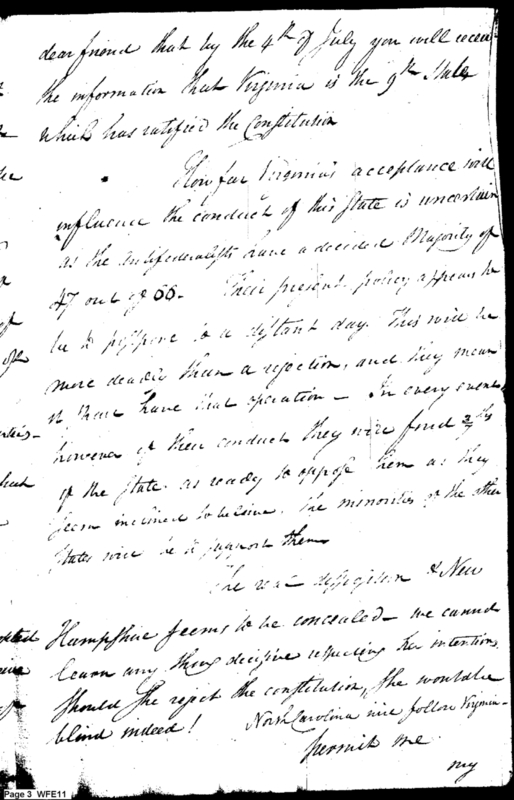 dear friend that by the 4th of July you will receive
the information that Virginia is the 9th State
which has ratified the Constitution
How far Virginia's acceptance will
influence the conduct of this State is uncertain
as the Antifederalists have a decided Majority of
47 out of 66. Their present policy appears to
be to postpone to a distant day. This will be
more deadly than a rejection, and they mean
it shall have that operation – In every event
however of their conduct they will find 2/7ths
of the State as ready to oppose them as they
seem inclined to believe. The minorities of the other
States will be to support them
The real disposition of New
Hampshire seems to be concealed – we cannot
learn any thing decisive respecting her intention
should she reject the constitution, she would be
blind indeed! North Carolina will follow Virginia –
permit me
my
Page 3 WFE11